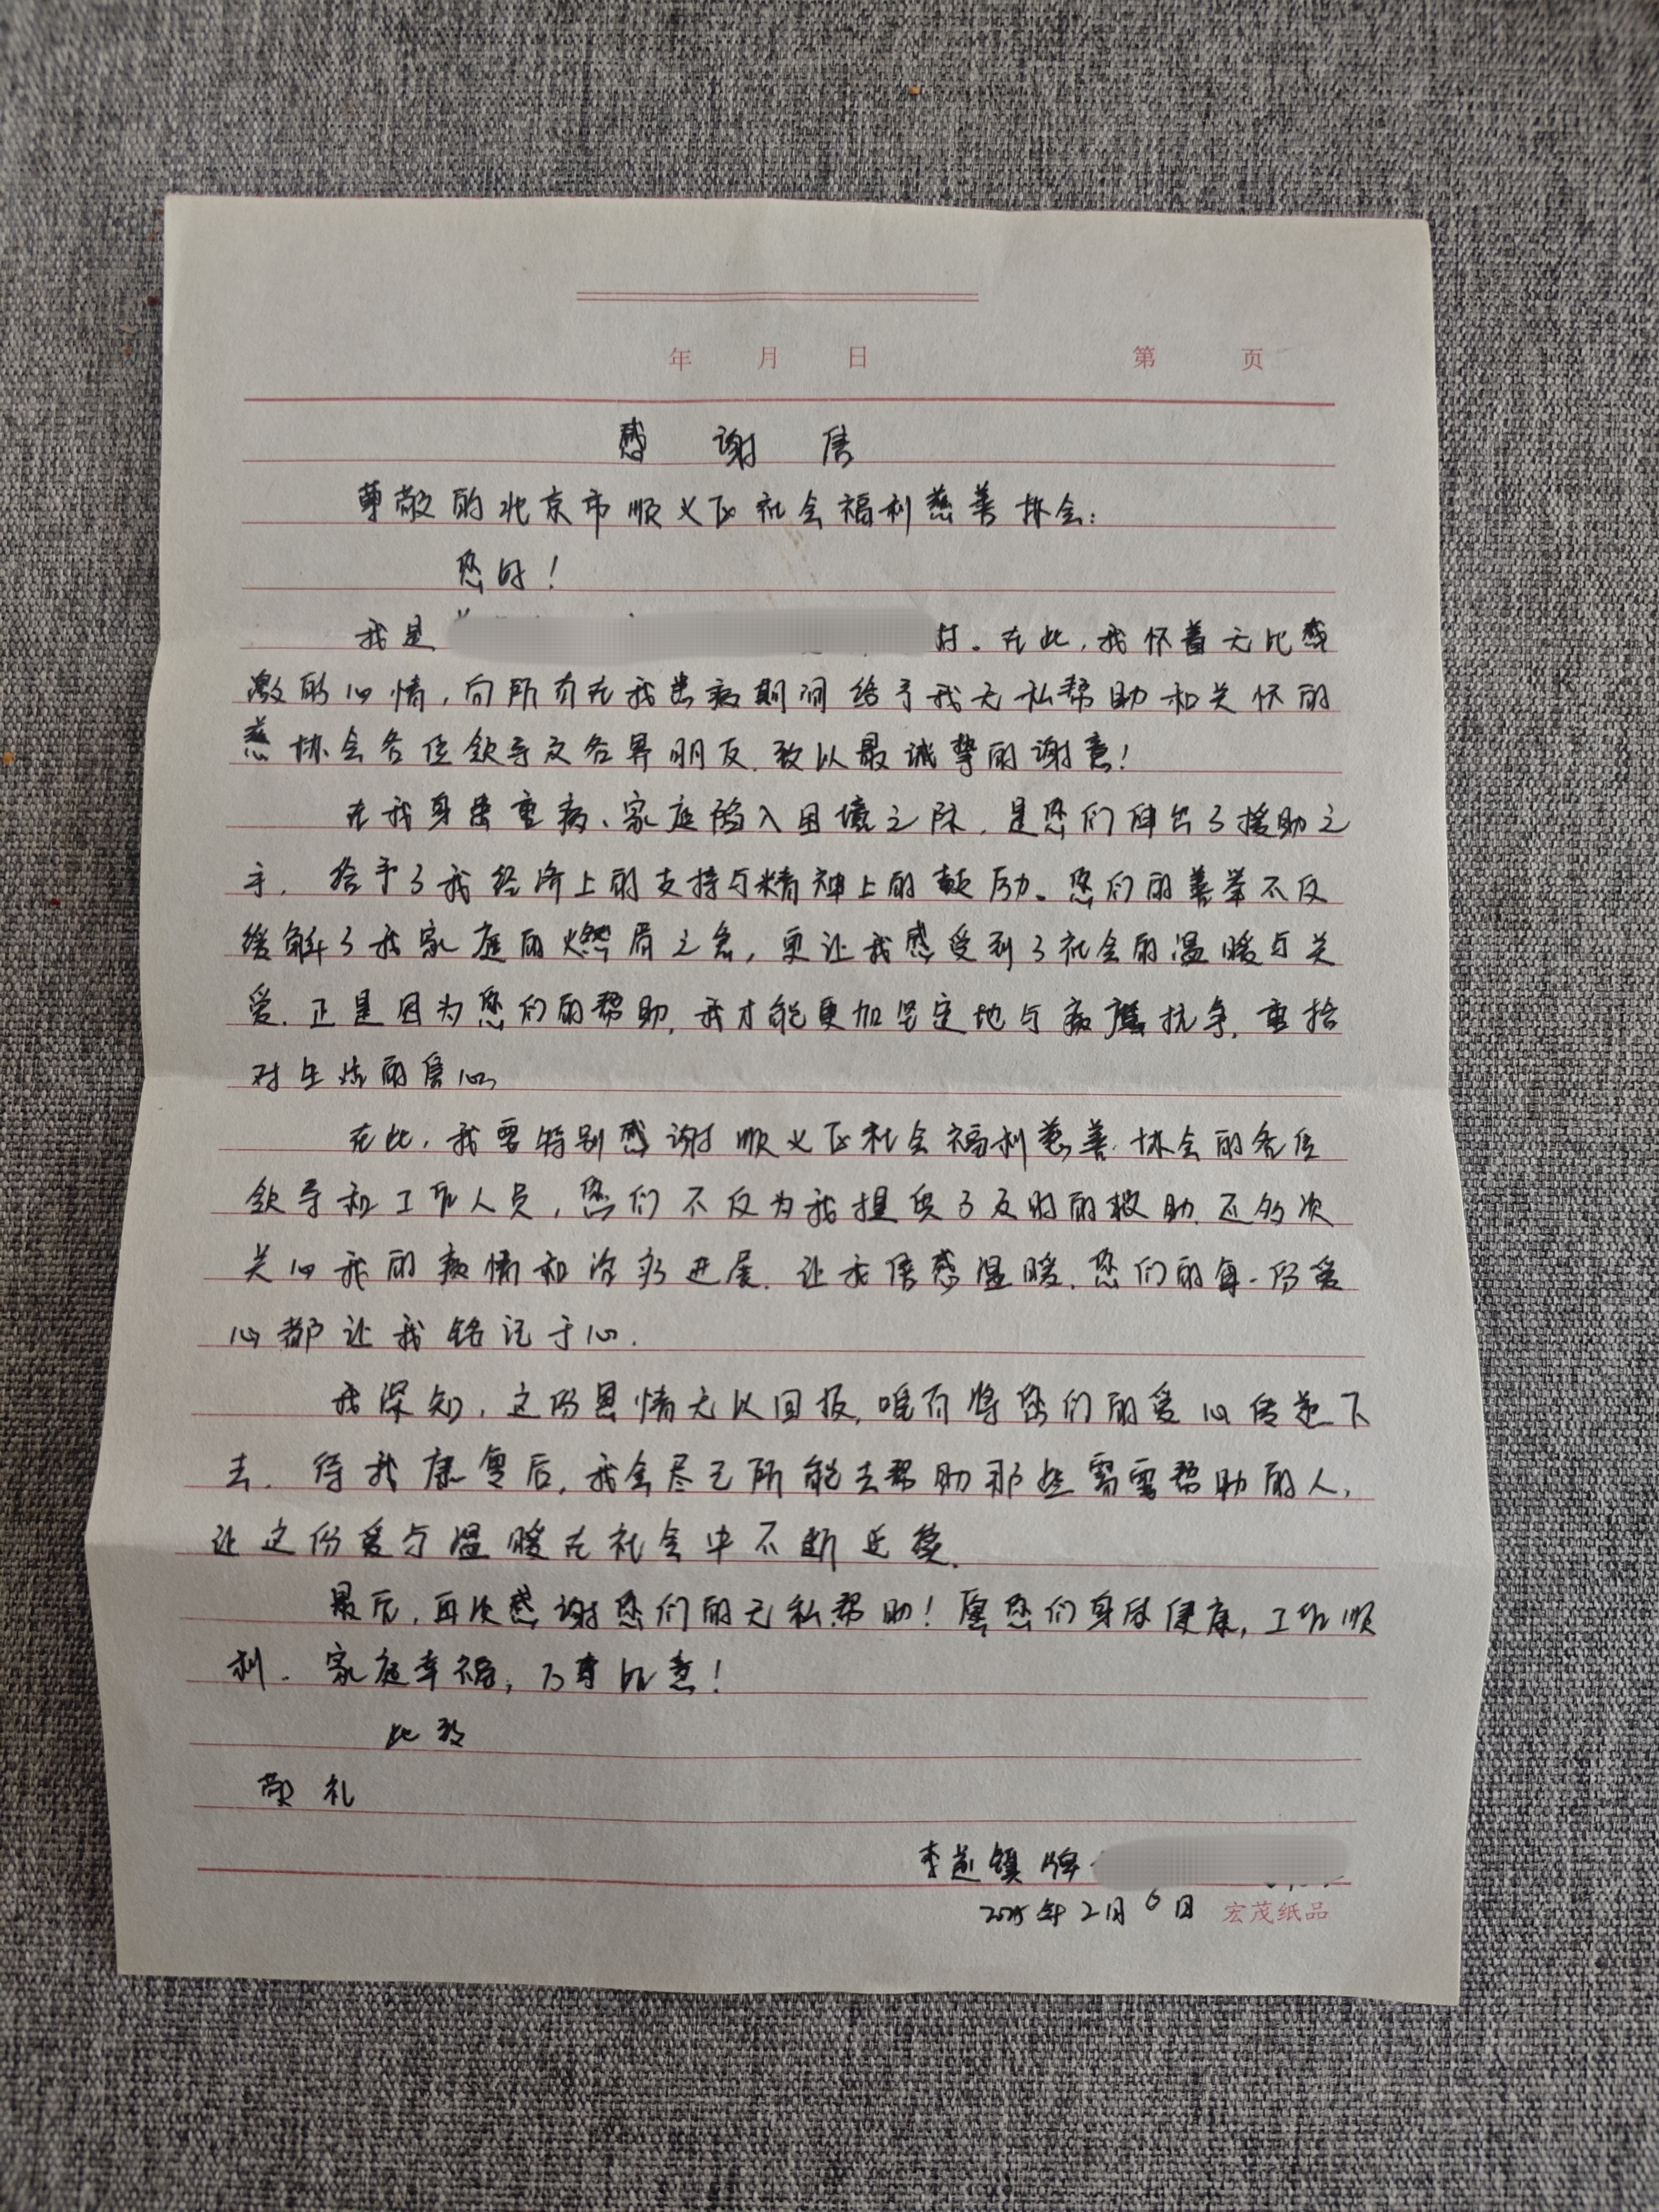 年 月 日 第 页
感 谢 信
尊敬的北京市顺义区社会福利慈善协会:
您好!
我是 村。在此,我怀着无比感
激的心情,向所有在我患病期间给予我无私帮助和关怀的
慈协会各位领导及各界朋友,致以最诚挚的谢意!
在我身患重病、家庭陷入困境之际,是您们伸出了援助之
手,给予了我经济上的支持与精神上的鼓励。您们的善举不仅
缓解了我家庭的燃眉之急,更让我感受到了社会的温暖与关
爱.正是因为您们的帮助,我才能更加坚定地与病魔抗争,重拾
对生活的信心.
在此,我要特别感谢顺义区社会福利慈善协会的各位
领导和工作人员,您们不仅为我提供了及时的救助,还多次
关心我的病情和治疗进展.让我倍感温暖.您们的每一份爱
心都让我铭记于心.
我深知,这份恩情无以回报,唯有将您们的爱心传递下
去.待我康复后,我会尽己所能去帮助那些需要帮助的人,
让这份爱与温暖在社会中不断延续.
最后,再次感谢您们的无私帮助!愿您们身体健康,工作顺
利.家庭幸福,万事如意!
此致
敬礼
李遂镇牌
2025年2月6日 宏茂纸品